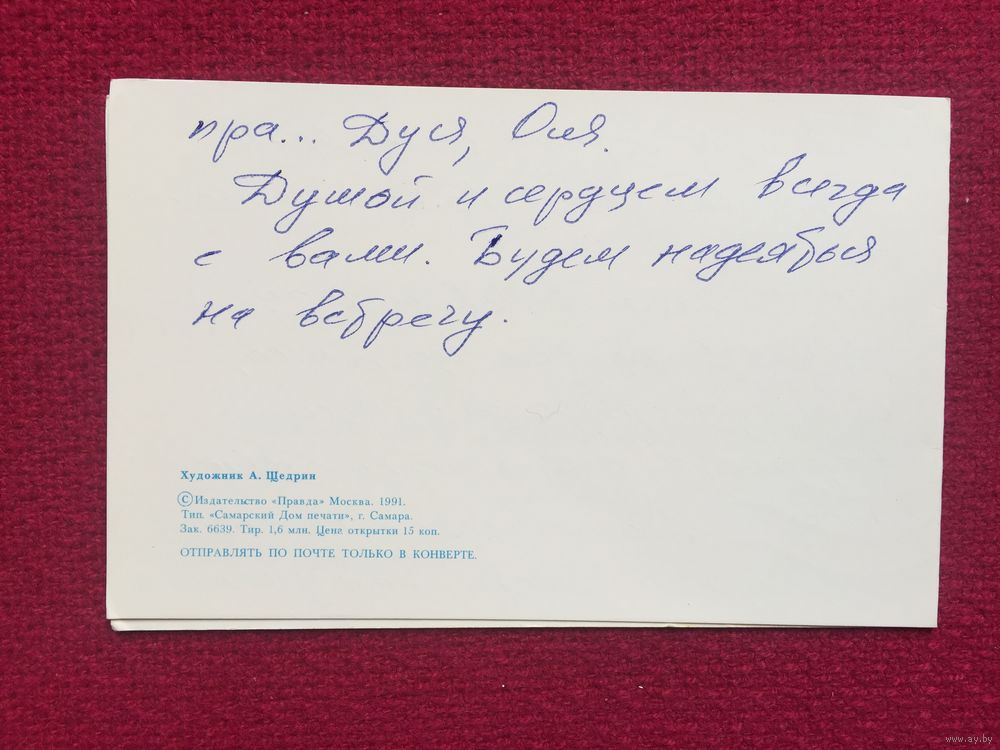 пра... Дуся, Оля.
Душой и сердцем всегда
с вами. Будем надеяться
на встречу.
Художник А. Щедрин
©Издательство «Правда» Москва. 1991.
Тип. «Самарский Дом печати», г. Самара.
Зак. 6639. Тир. 1,6 млн. Цена открытки 15 коп.
ОТПРАВЛЯТЬ ПО ПОЧТЕ ТОЛЬКО В КОНВЕРТЕ.
www.ay.by